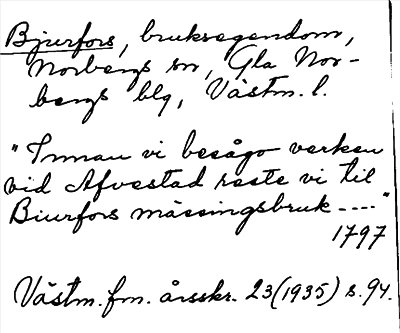 Bjurfors, bruksegendom,
Norbergs sn, Gla Nor-
bergs blg, Västm. l.
"Innan vi besågo verken
vid Afvestad reste vi til
Biurfors mässingsbruk ----"
1797
Västm. fm. årsskr. 23 (1935) s. 94.